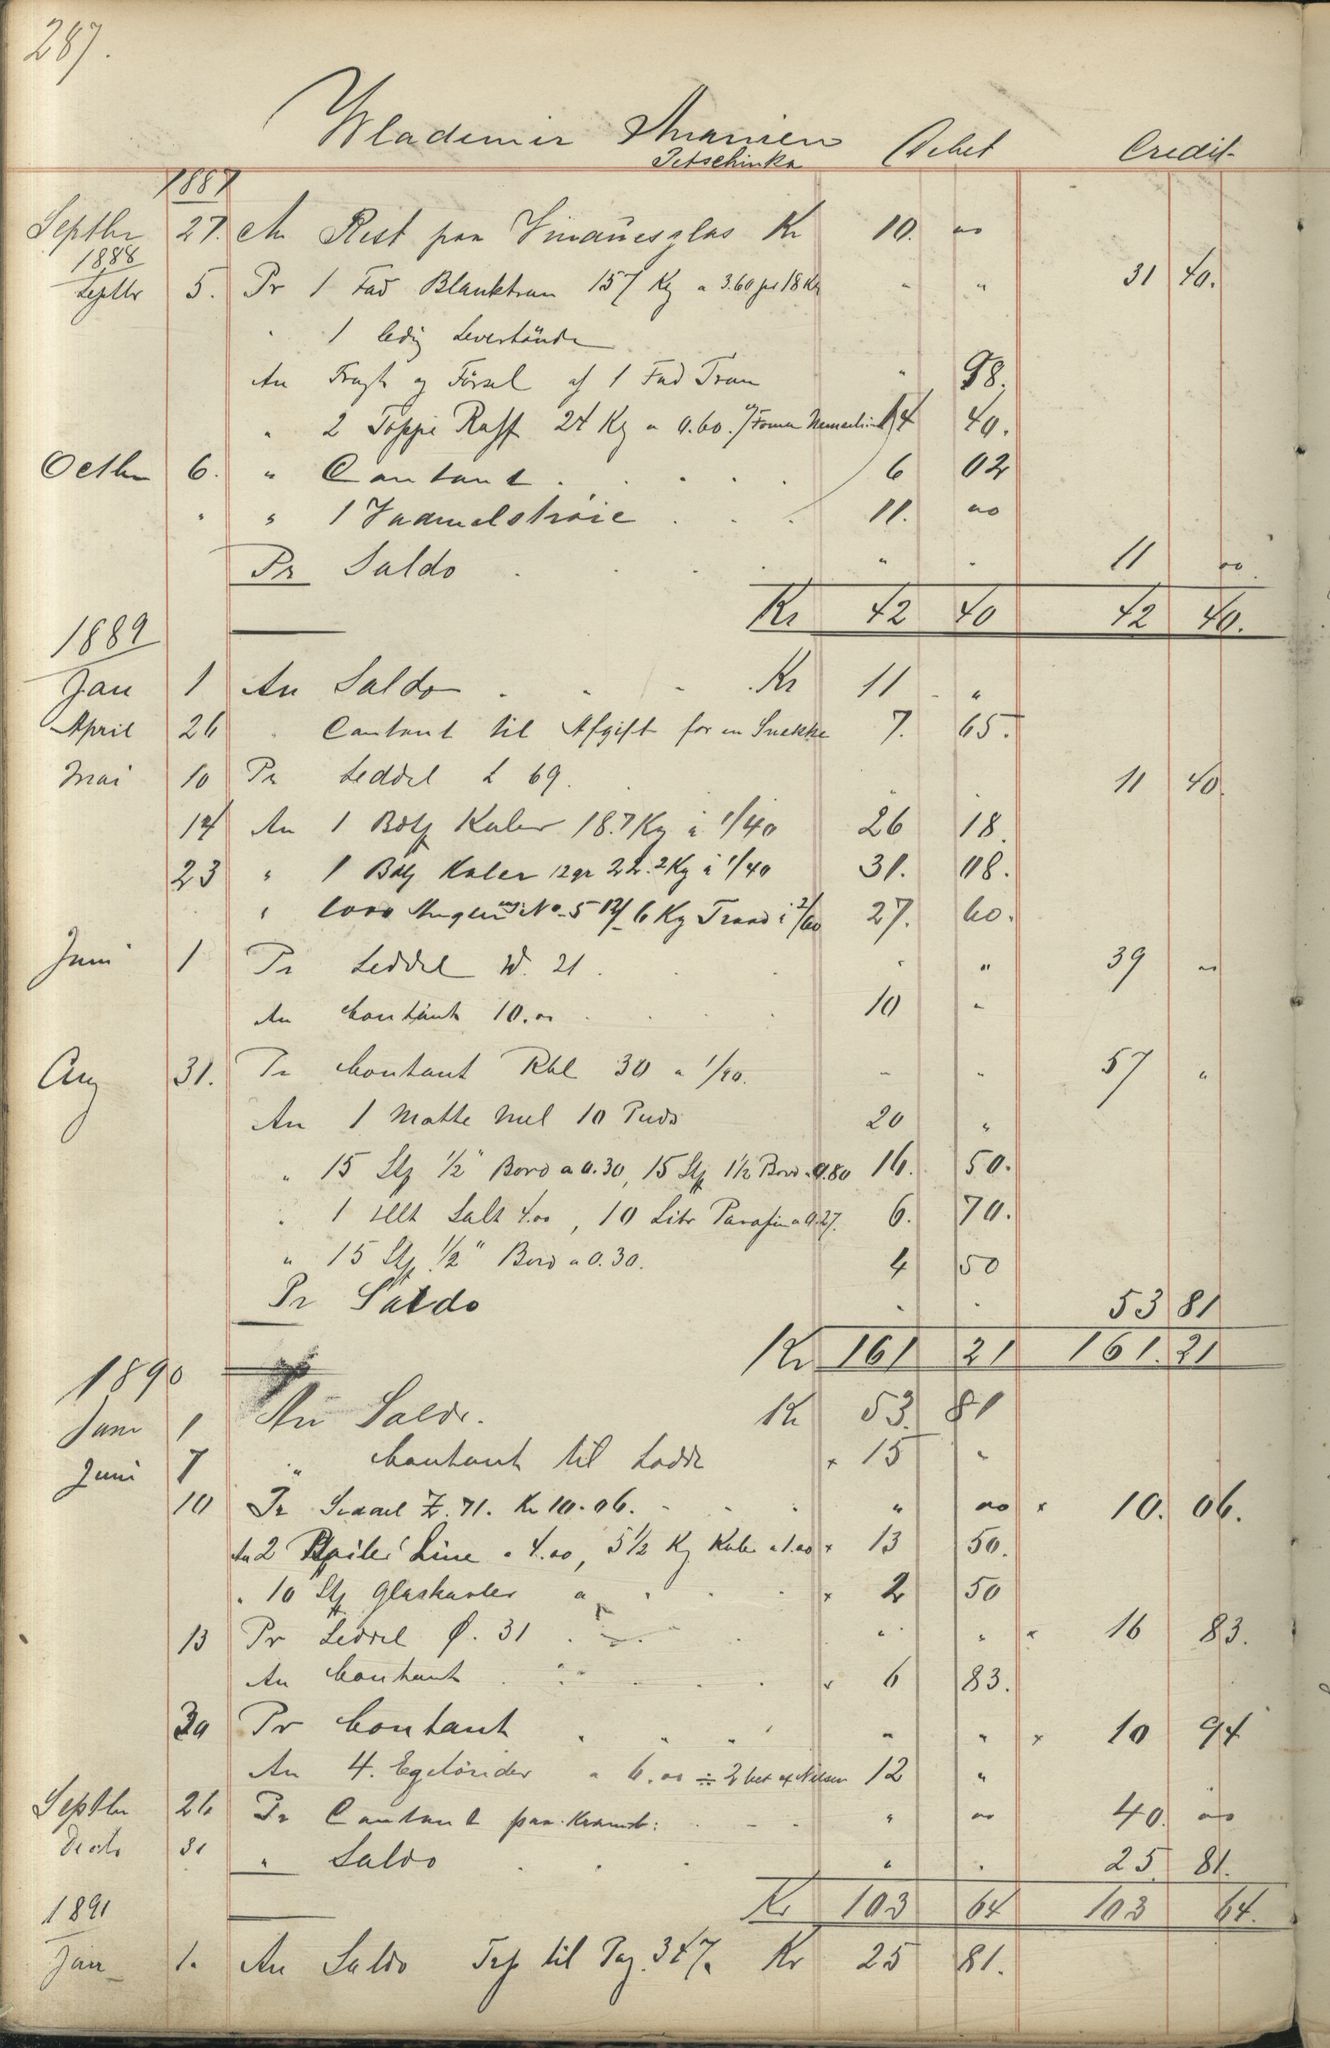 287.
Wladimir Ananien Debet Credit
Petschinka
1887
Septbr 27. An Rest paa Vinduesglas Kr 10. 00
1888
Septbr 5. Pr 1 Fad Blanktran 157 Kg a 3.60 pr 18 Kg " " 31 40.
" 1 ledig Levertönde
An Fragt og Försel af 1 Fad Tran " 98.
" 2 Toppe Raff 24 Kg a 0.60. 14 40.
Octbr 6. " Contant 6 02
" " 1 Vadmelströie 11. 00
Pr Saldo " " 11 00
Kr 42 40 42 40.
1889
Jan 1 An Saldo Kr 11 "
April 26 " Contant til Afgift for en Snekke 7. 65.
Mai 10 Pr Seddel L 69. " " 11 40.
14 An 1 Kabler 18.7 Kg á 1/40 26 18.
23 " 1 Kabler 12 gr 22.2 Kg á 1/40 31. 08.
" 1000 Angler No 5 6 Kg 2/60 27. 60.
Juni 1 Pr Seddel W. 21. " " 39 00
An Contant 10.00 10 "
Aug 31. Pr Contant Rbl 30 a 1/90. " " 57 "
An 1 Matte Mel 10 Puds 20 "
" 15 Stk 1/2" Bord a 0.30, 15 Stk 1 1/2 Bord a 0.80 16. 50.
" 1 Salt 4.00, 10 Litr Parafin a 0.27. 6. 70.
" 15 Stk 1/2" Bord a 0.30. 4 50
Pr Saldo " " 53 81
Kr 161 21 161. 21
1890
Janr 1 An Saldo. Kr 53. 81
Juni 7 " Contant til Lodde x 15 "
10 Pr Seddel Z. 71. Kr 10.06. " 00 x 10. 06.
An 2 Line a 4.00, 5 1/2 Kg Kabr a 1.00 x 13 50.
" 10 Stk Glaskavler a " x 2 50
13 Pr Seddel Ø. 31 " " x 16 83.
An Contant x 6 83.
30 Pr Contant " " x 10 94
An 4. Egetönder a 6.00 ÷ 2 bet af Nilsen 12 "
Septbr 26 Pr Contant paa " 00 40. 00
Decbr 31 " Saldo " " 25. 81.
Kr 103 64 103 64.
1891
Jan 1. An Saldo Trp til Pag. 347. Kr 25 81.